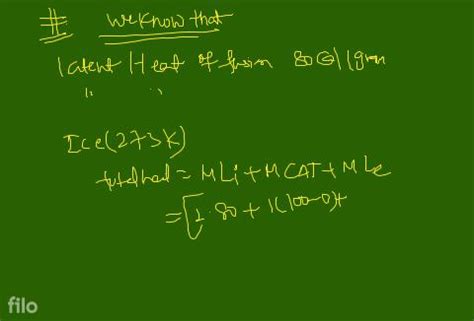 # We know that
latent Heat of fusion 80 Cal/gram
" "
Ice (273K)
total heat = MLi + MCΔT + MLe
= [1·80 + 1(100-0)+
filo